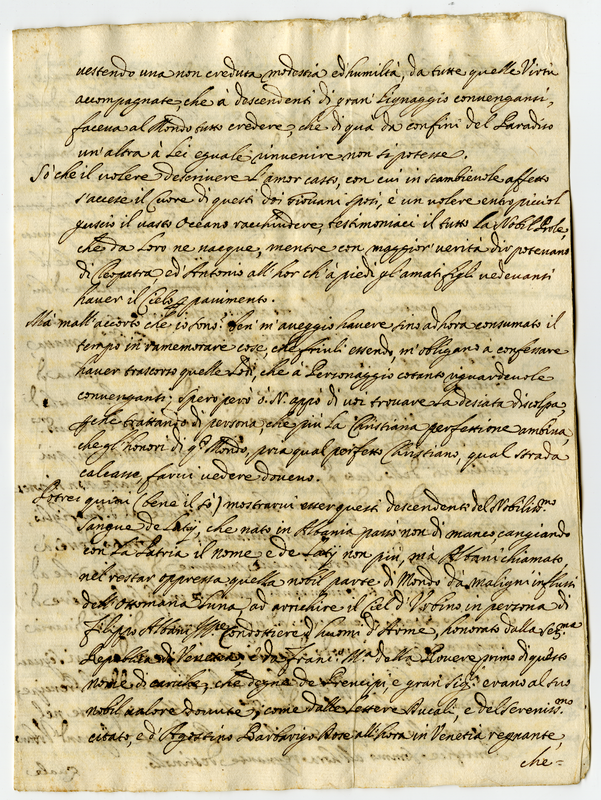 vestendo una non creduta modestia ed humiltà, da tutte quelle Virtù
accompagnate, che à descendenti di gran' Lignaggio convenganti,
faceva al Mondo tutto credere, che di quà da confini del Paradiso
un'altra à Lei eguale invenire non si potesse.
Sò che il volere descrivere L'amor casto, con cui in scambievole affetto
s'accese il Cuore di questi doi Giovani sposi, è un volere entro picciol
guscio il vasto Oceano racchiudere, testimoniaci il tutto La Nobil Prole,
che da Loro ne nacque, mentre con maggior verità dir potevano
di Cleopatra ed Antonio all'hor ch'à piedi gl'amati figli vedevanti
haver il Cielo p pavimento.
Mà mall'accorto che io sono! ben m'aveggio havere sino ad hora consumato il
tempo in ramemorare cose, che frivoli essendo, m'obligano à confessare
haver trascorso quelle Lodi, che à Personaggio cotanto riguardevole
convenganti; spero però ò. N. appo di voi trovare La desiata discolpa,
perche trattando di persona, che più La Christiana perfettione ambiva,
che gl'honori di qto Mondo, pria qual perfetto Christiano, qual strada
calcasse farvi vedere dovevo.
Potrei quivi (bene il sò) mostrarvi esser questi descendenti del Nobiliss.mo
sangue de Latij, che nato in Albania passò non di manco cangiando
con La Patria il nome, e de Latij non più, mà Albani chiamato
nel restar oppressa quella nobil parte di Mondo da maligni influssi
dell'Ottomana Luna, ad arrichire il Ciel d'Urbino in persona di
Filippo Albani Condottiere d'huomi d'Arme, honorato dalla Ser.ma
Republica di Venetia, e da Fran.co M.a della Rovere primo di questo
nome di cariche, che degne de Prencipi, e gran Sig.ri erano al suo
nobil valore dovute; come dalle Lettere Ducali, e del Sereniss.mo
citato, e d'Agostino Barbarigo Dose all'hora in Venetia regnante,
che=